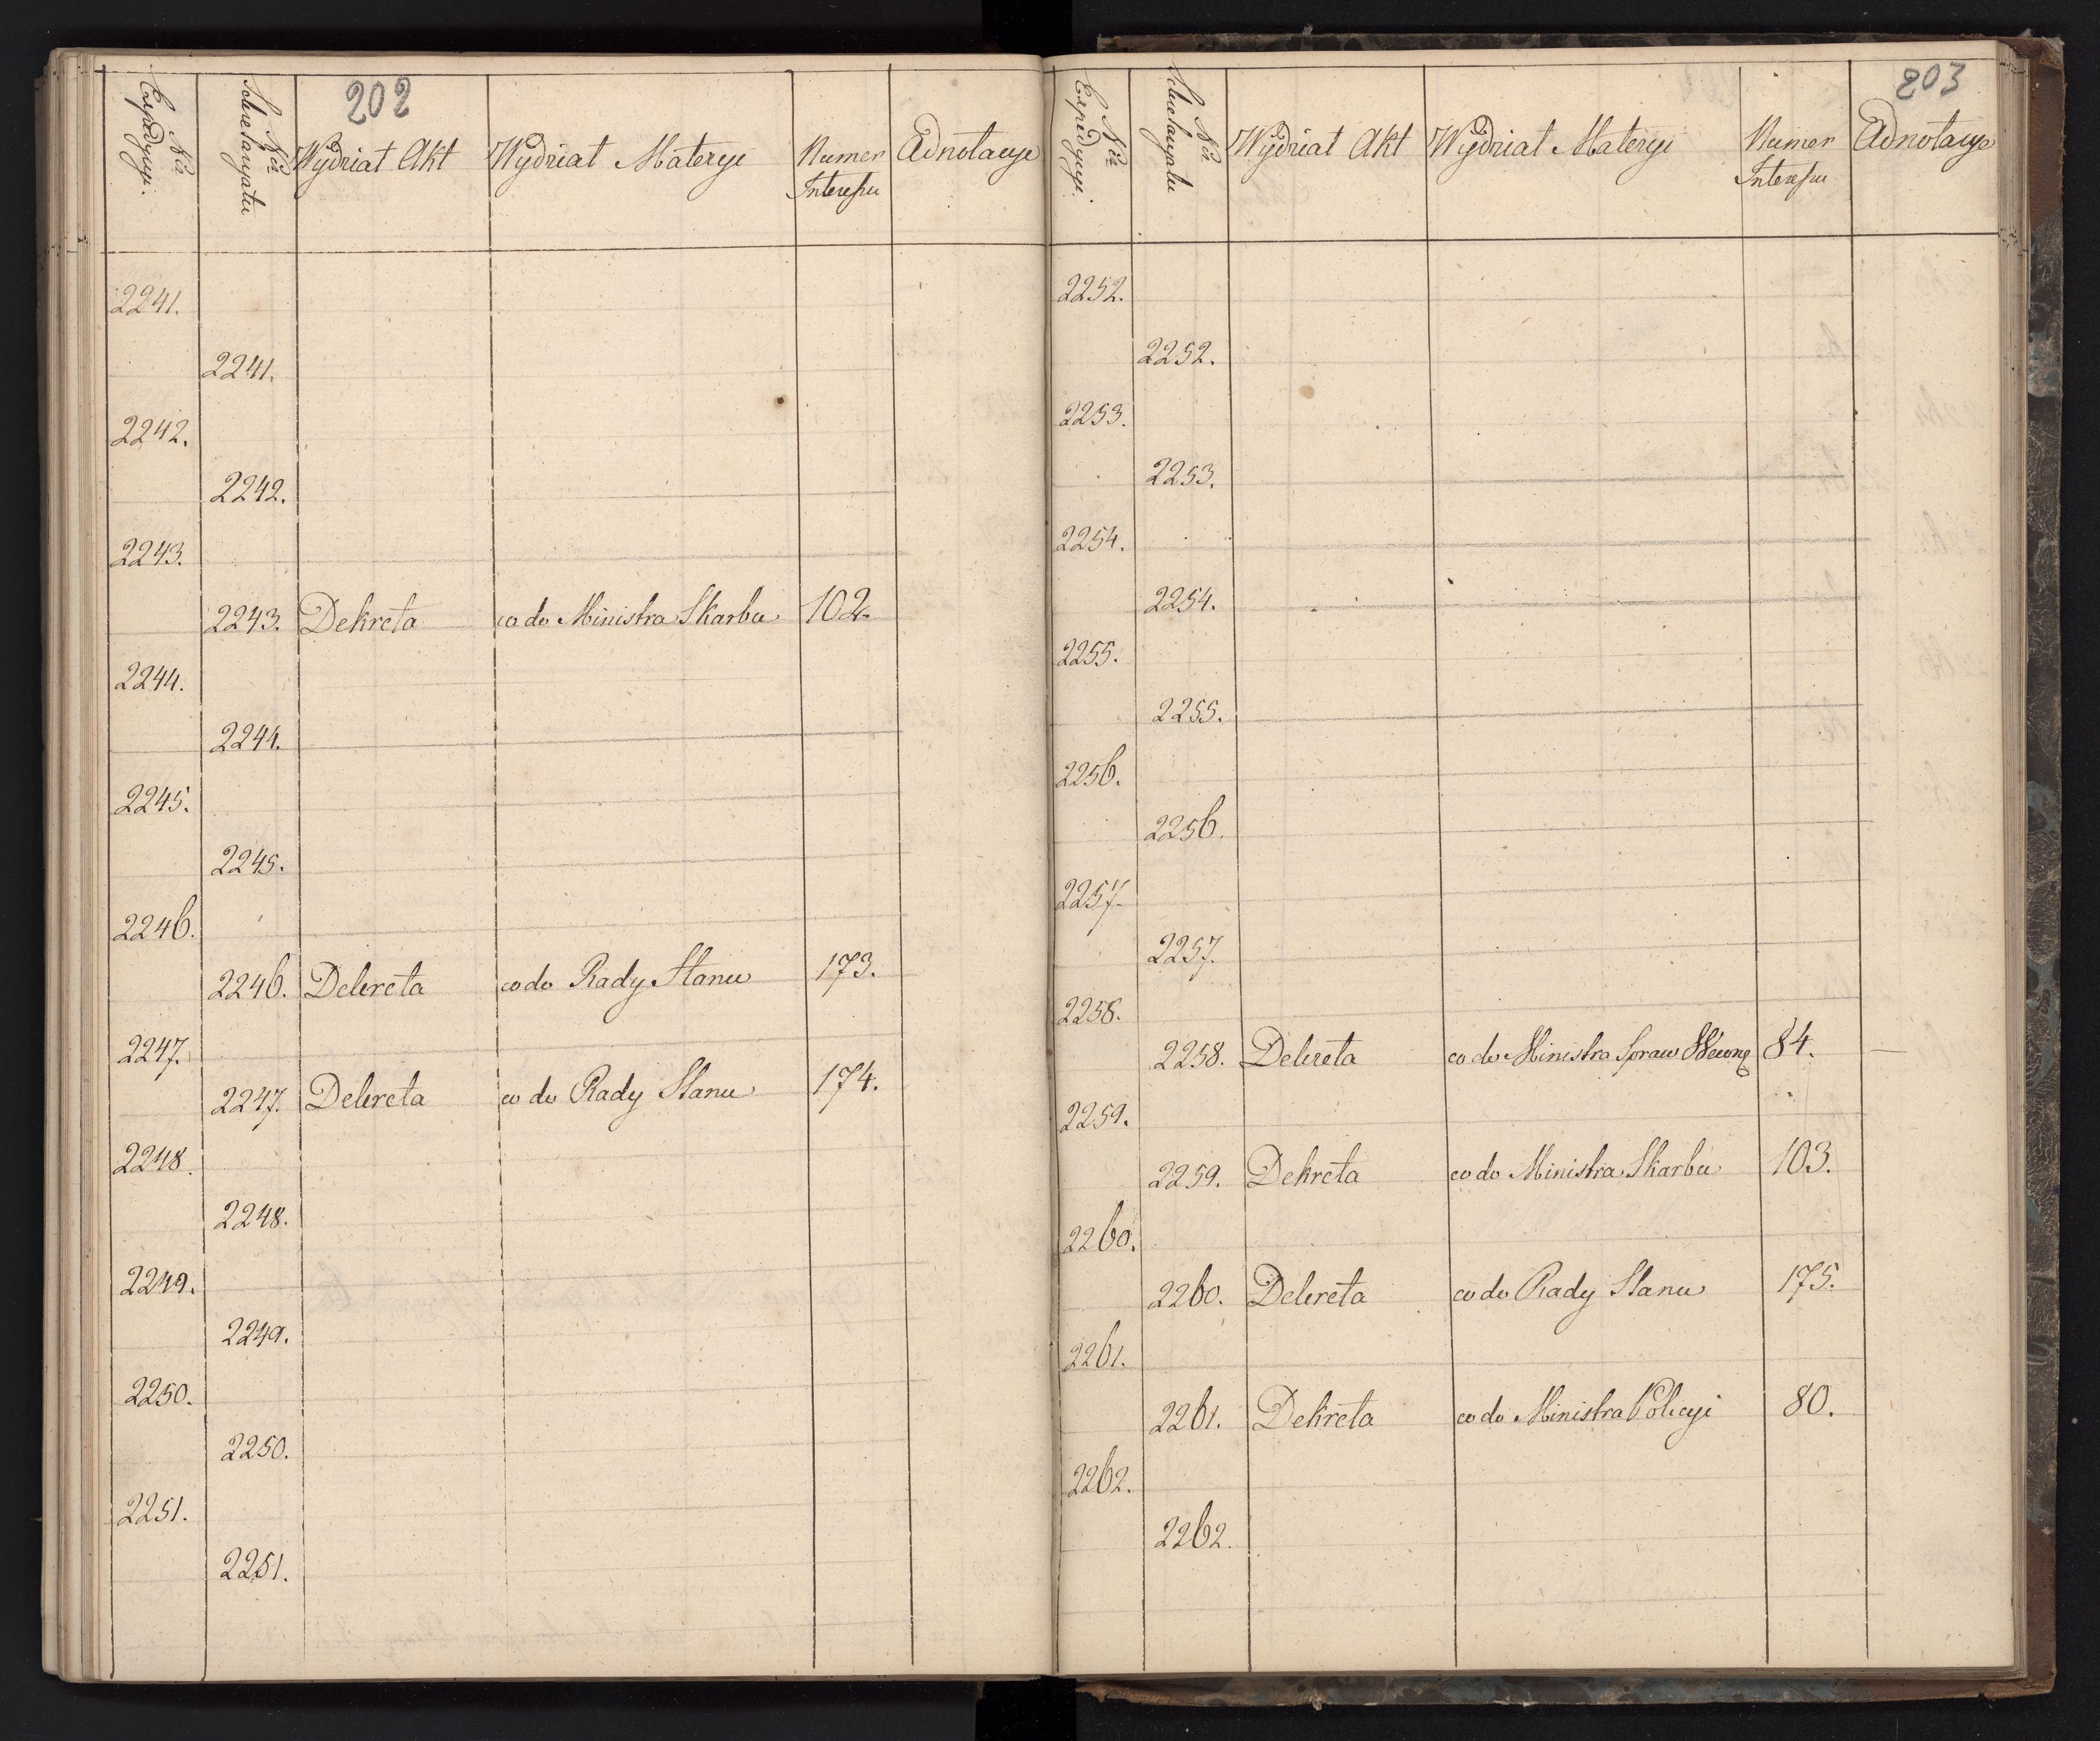 202
Nro Expedycyi.
Nro Sekretaryatu
Wydział Akt
Wydział Materyi
Numer Interessu
Adnotacye
2241.
2241.
2242.
2242.
2243.
2243. Dekreta co do Ministra Skarbu 102.
2244.
2244.
2245.
2245.
2246.
2246. Dekreta co do Rady Stanu 173.
2247.
2247. Dekreta co do Rady Stanu 174.
2248.
2248.
2249.
2249.
2250.
2250.
2251.
2251.
203
Nro Expedycyi.
Nro Sekretaryatu
Wydział Akt
Wydział Materyi
Numer Interessu
Adnotacye
2252.
2252.
2253.
2253.
2254.
2254.
2255.
2255.
2256.
2256.
2257.
2257.
2258.
2258. Dekreta co do Ministra Spraw Wewnę 84.
2259.
2259. Dekreta co do Ministra Skarbu 103.
2260.
2260. Dekreta co do Rady Stanu 175.
2261.
2261. Dekreta co do Ministra Policyi 80.
2262.
2262.